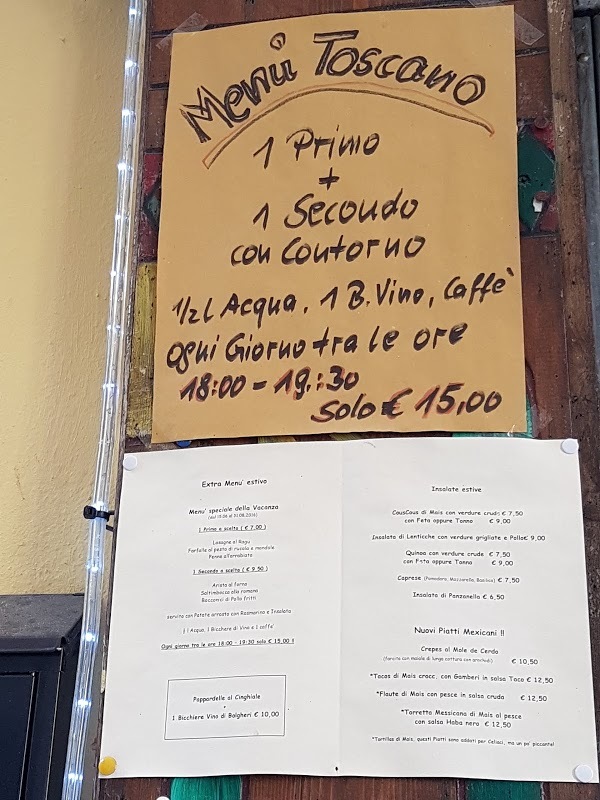 Menú Toscano
1 Primo
+
1 Secondo
con Contorno
1/2 l Acqua, 1 B. Vino, Caffè
Ogni Giorno tra le ore
18:00 - 19.:30
Solo € 15,00
Extra Menu' estivo
Menu' speciale della Vacanza
1 Primo a scelta ( € 7,00 )
Lasagne al Ragu
Farfalle al pesto di rucola e mandole
Penne all'arrabiata
1 Secondo a scelta ( € 9,50 )
Arista al forno
Saltimbocca alla romana
Bocconcini di Pollo fritti
servito con Patate arrosto con Rosmarino e Insalata
Acqua, 1 Bicchiere di Vino e 1 caffe'
Ogni giorno tra le ore 18:00 - 19:30 solo € 15,00 !!
Pappardelle al Cinghiale
+
1 Bicchiere Vino di Bolgheri € 10,00
Insalate estive
CousCous di Mais con verdure crude € 7,50
con Feta oppure Tonno € 9,00
Insalata di Lenticche con verdure grigliate e Pollo € 9,00
Quinoa con verdure crude € 7,50
con Feta oppure Tonno € 9,00
Caprese (Pomodoro, Mozzarella, Basilico) € 7,50
Insalata di Panzanella € 6,50
Nuovi Piatti Mexicani !!
Crepes al Mole de Cerdo
(farcita con maiale di lunga cottura con arachidi) € 10,50
*Tacos di Mais crocc. con Gamberi in salsa Taco € 12,50
*Flaute di Mais con pesce in salsa cruda € 12,50
*Torretta Messicana di Mais al pesce
con salsa Haba nero € 12,50
*Tortillas di Mais, questi Piatti sono addati per Celiaci, ma un po' piccante!